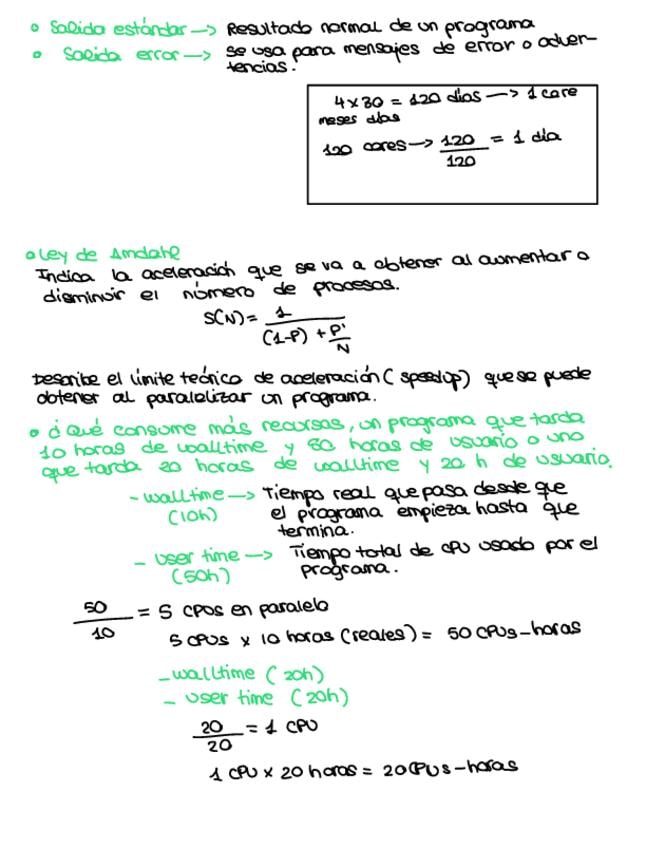 • Salida estándar → Resultado normal de un programa
• Salida error → se usa para mensajes de error o adver-
tencias.
4 x 30 = 120 días → 1 core
meses días
120 cores → 120/120 = 1 día
• Ley de Amdahl
Indica la aceleración que se va a obtener al aumentar o
disminuir el número de procesos.
S(N) = 1/((1-P) + P/N)
Describe el límite teórico de aceleración (speedup) que se puede
obtener al paralelizar un programa.
• ¿Qué consume más recursos, un programa que tarda
10 horas de walltime y 50 horas de usuario o uno
que tarda 20 horas de walltime y 20 h de usuario.
- walltime → Tiempo real que pasa desde que
(10h) el programa empieza hasta que
termina.
- user time → Tiempo total de CPU usado por el
(50h) programa.
50/10 = 5 CPUs en paralelo
5 CPUs x 10 horas (reales) = 50 CPUs-horas
- walltime (20h)
- user time (20h)
20/20 = 1 CPU
1 CPU x 20 horas = 20 CPUs-horas